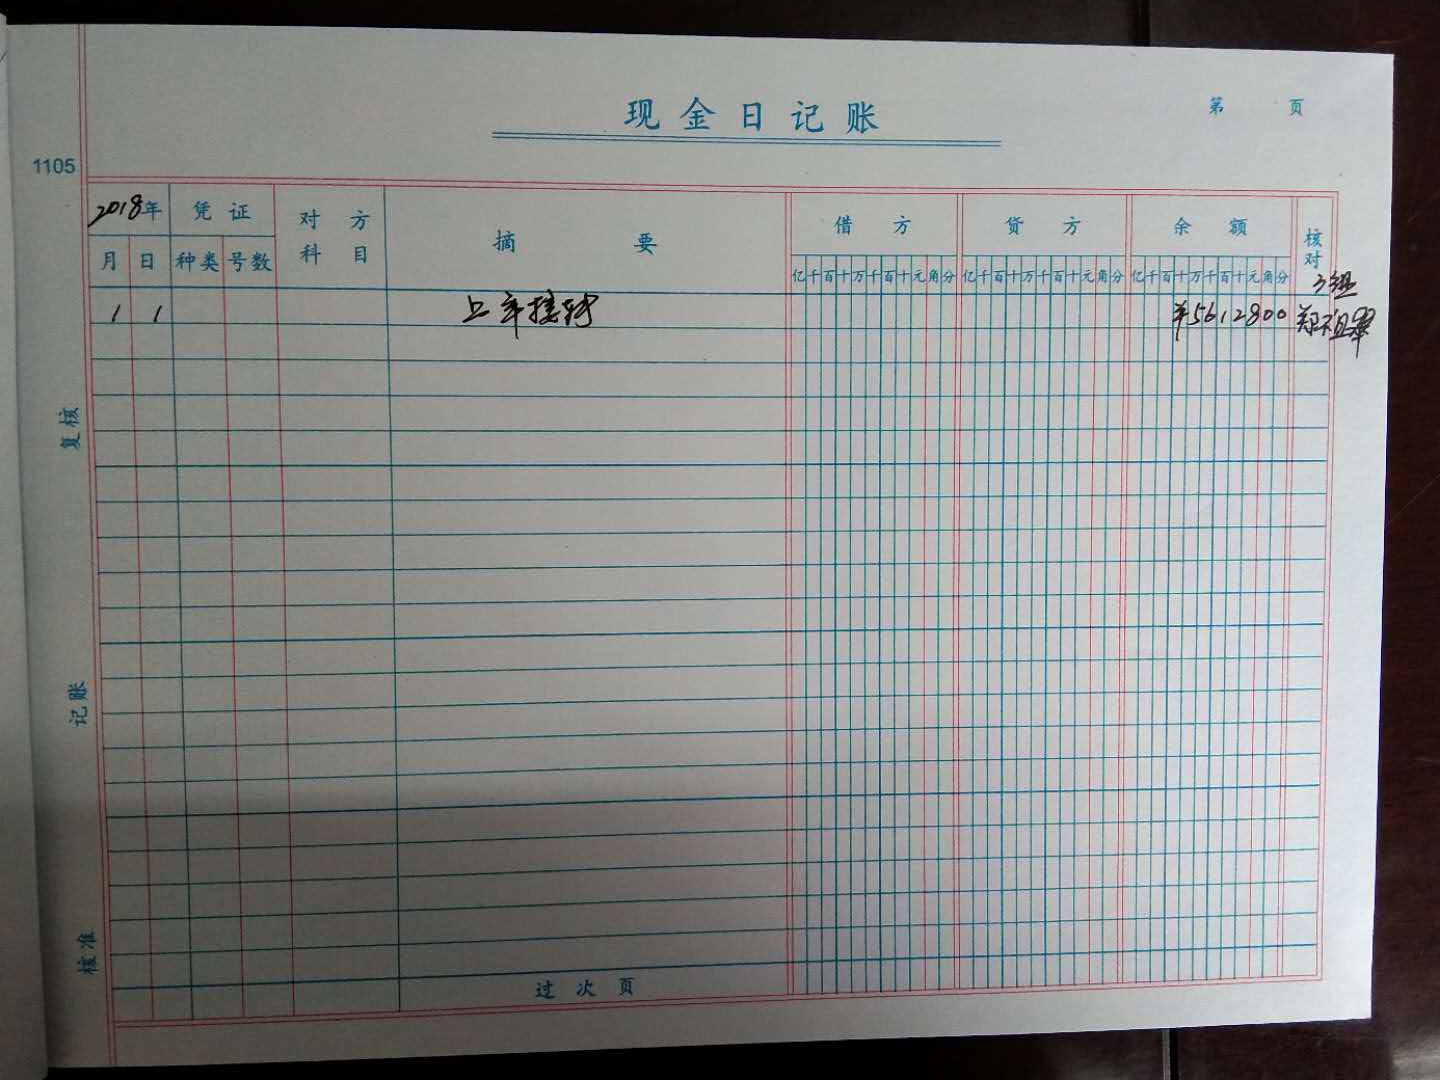 现金日记账
第 页
1105
2018年 凭证 对方科目 摘要 借方 贷方 余额 核对
月 日 种类 号数 亿千百十万千百十元角分 亿千百十万千百十元角分 亿千百十万千百十元角分
3组
1 1 上年接转 ¥5612800
复核
记账
核准
过次页